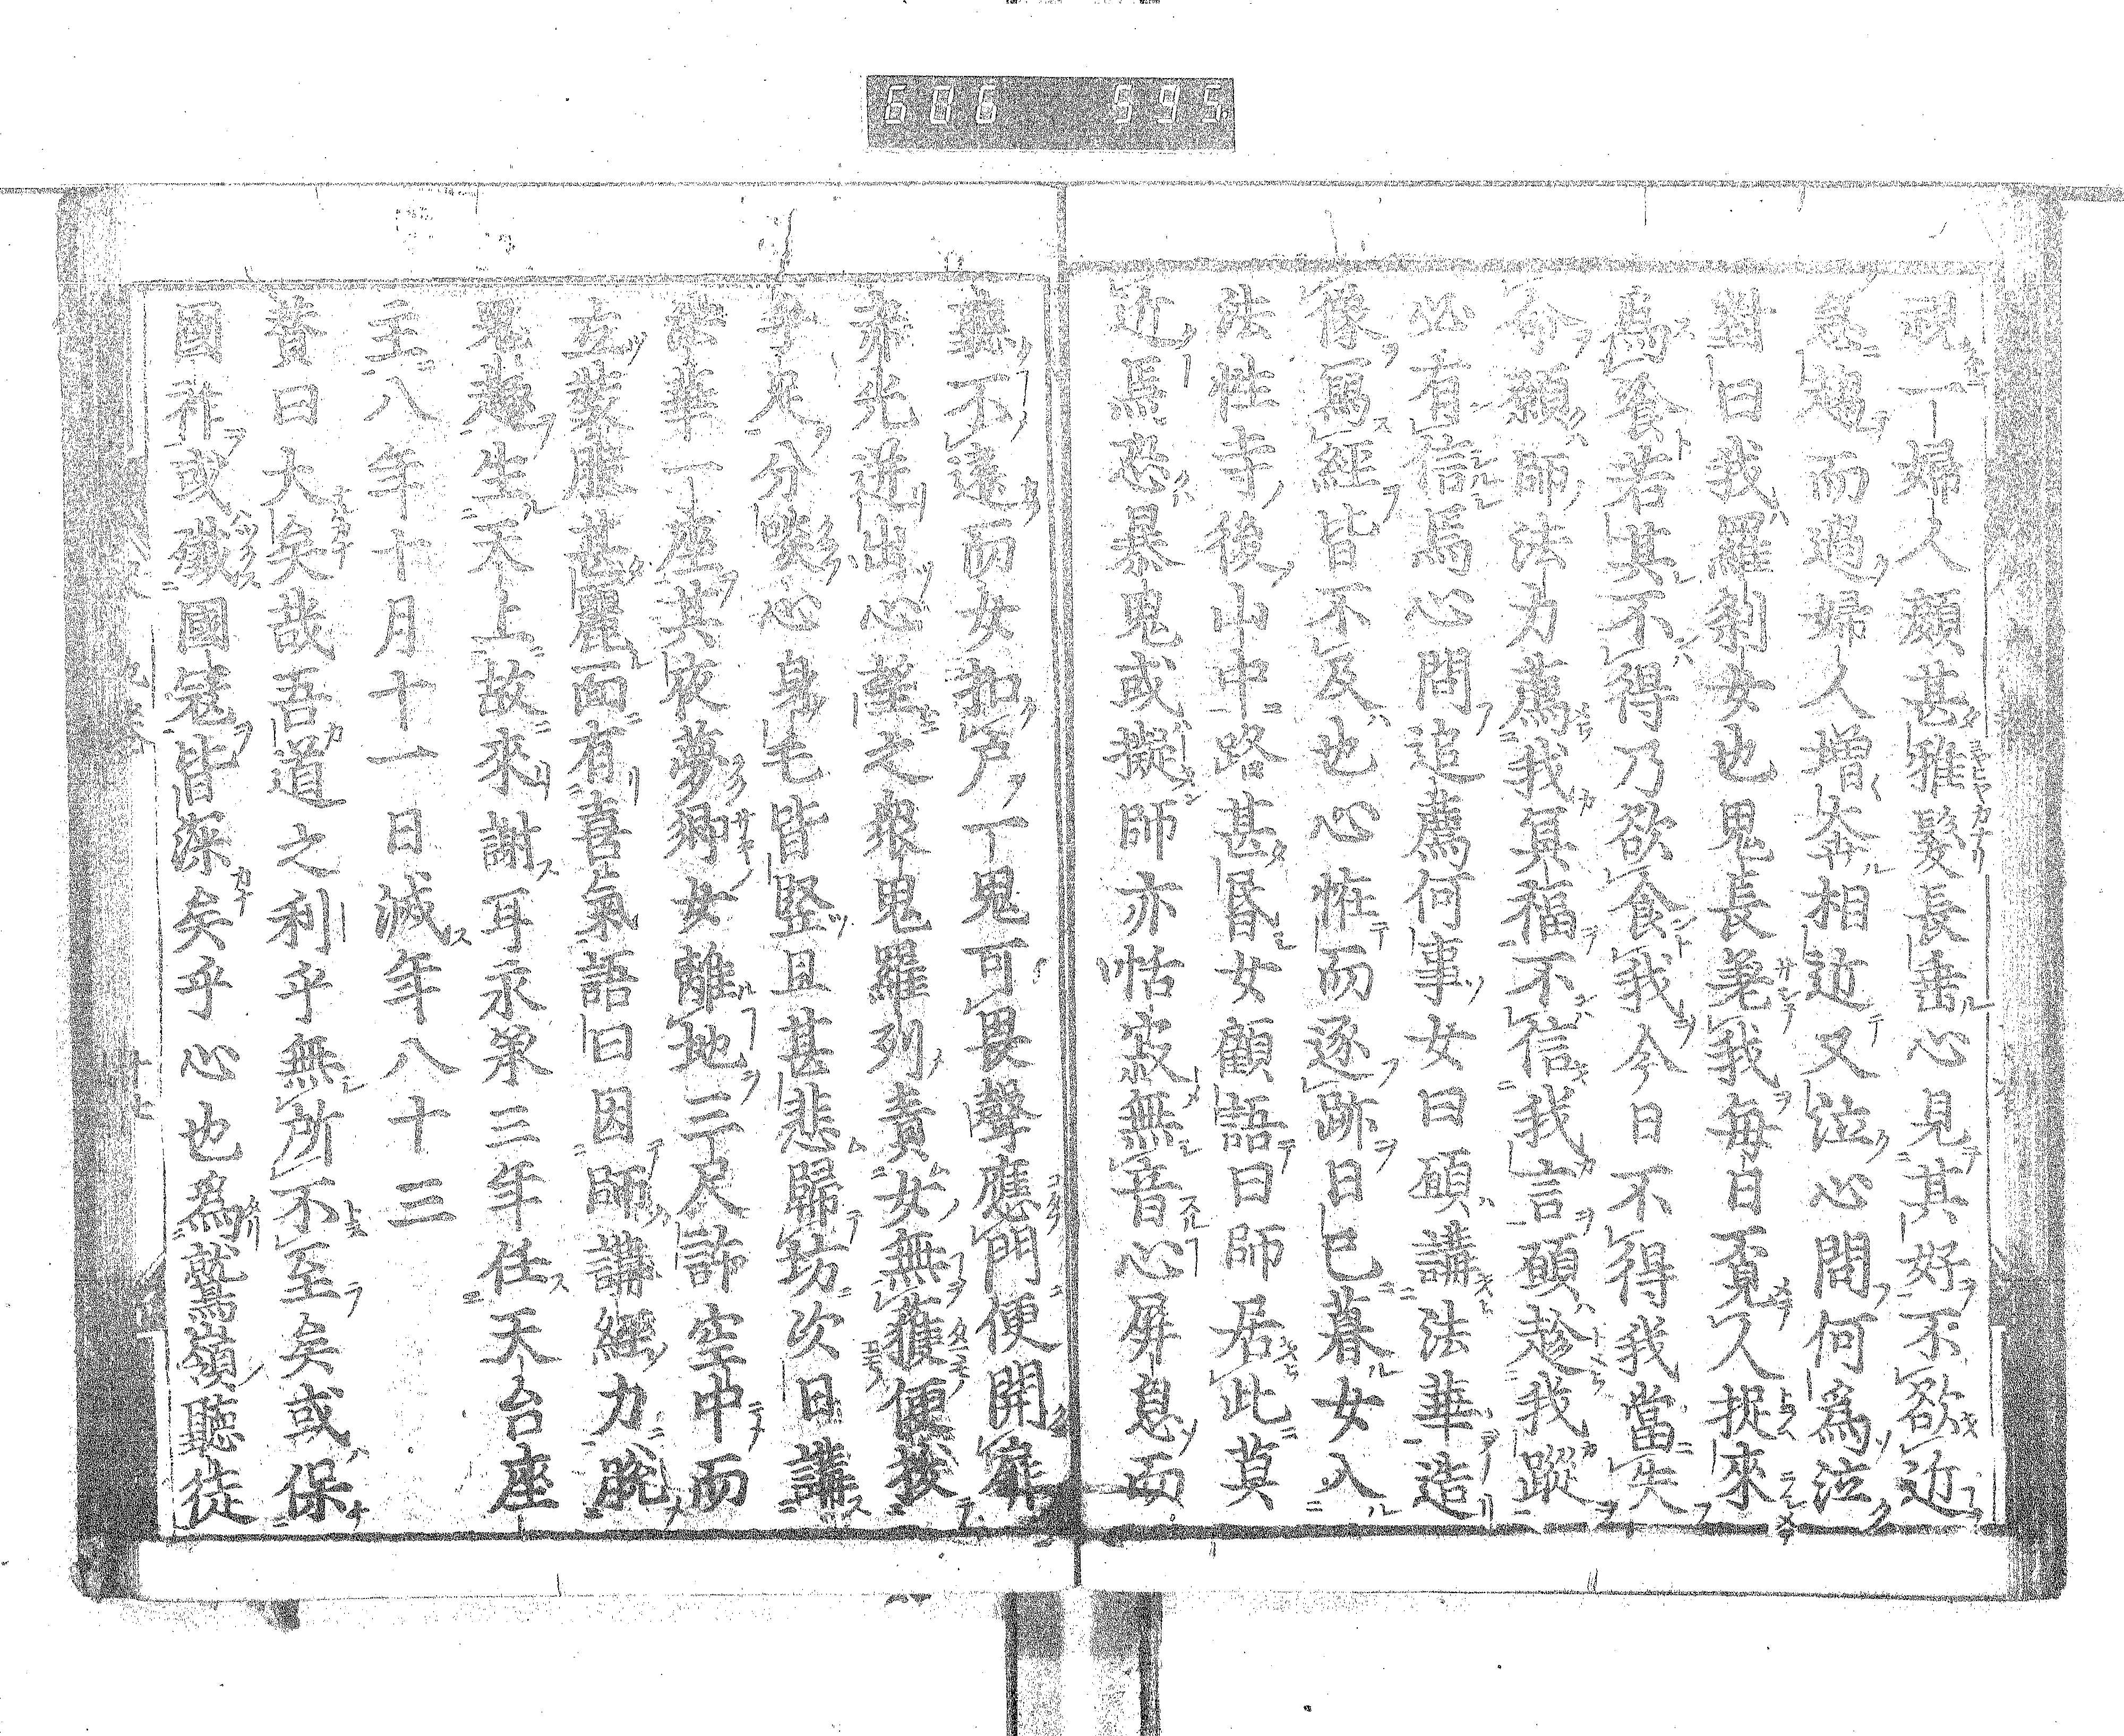 視一婦人頗甚雅髮長垂心見其好不欲近
急趨而過婦人增奔相近又泣心問何爲泣
對曰我羅刹女也鬼長差我每日覓人捉來
爲餐若其不得乃欲食我今日不得我當失
命願師法力薦我冥福不信我言願趁我蹤
必有信焉心問追薦何事女曰願講法華造
像寫經皆不及也心恠而逐跡日已暮女入
法性寺後山中路甚昏女顧語曰師居此莫
近焉恐暴鬼或擬師亦怗寂無音心屏息而
聽不遠而女扣戶一鬼可畏聲應門便開扉
赤光迸出心望之衆鬼羅列責女無獲便拔
手足分啖心身毛皆竪且甚悲歸坊次日講
法華一座其夜夢鄉女離地三尺許空中而
立裝服甚麗面有喜氣語曰因師講經力脫
鬼趣生天上故來謝耳永承三年任天台座
主八年十月十一日滅年八十三
賛曰大矣哉吾道之利乎無所不至矣或保
國祚或殲國寇皆深矣乎心也爲鷲嶺聽徒
686 695